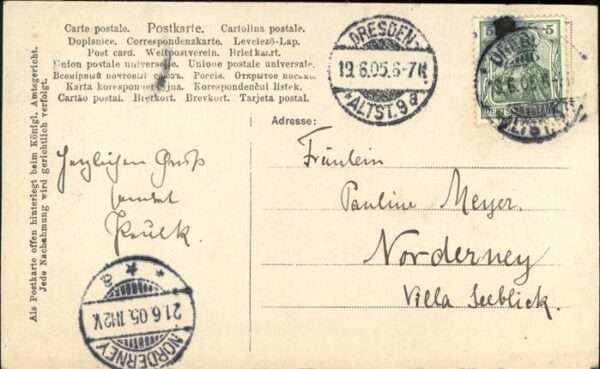 Carte postale. Postkarte. Cartolina postale.
Dopisnice. Correspondenzkarte. Levelező-Lap.
Post card. Weltpostverein. Briefkaart.
Union postale universelle. Unione postale universale.
Всемірный почтовый союзъ. Россія. Открытое письмо.
Karta korespondencyjna. Korespondenční lístek.
Cartão postal. Bretkort. Brevkort. Tarjeta postal.
Als Postkarte offen hinterlegt beim Königl. Amtsgericht.
Jede Nachahmung wird gerichtlich verfolgt.
Herzlichen Gruß
sendet
DRESDEN-
19.6.05.6-7N
*ALTST.9a
5 5
ALTST.
Adresse:
Fräulein
Pauline Meyer.
Norderney
Villa Seeblick.
NORDERNEY
21.6.05.11-12V.
* a